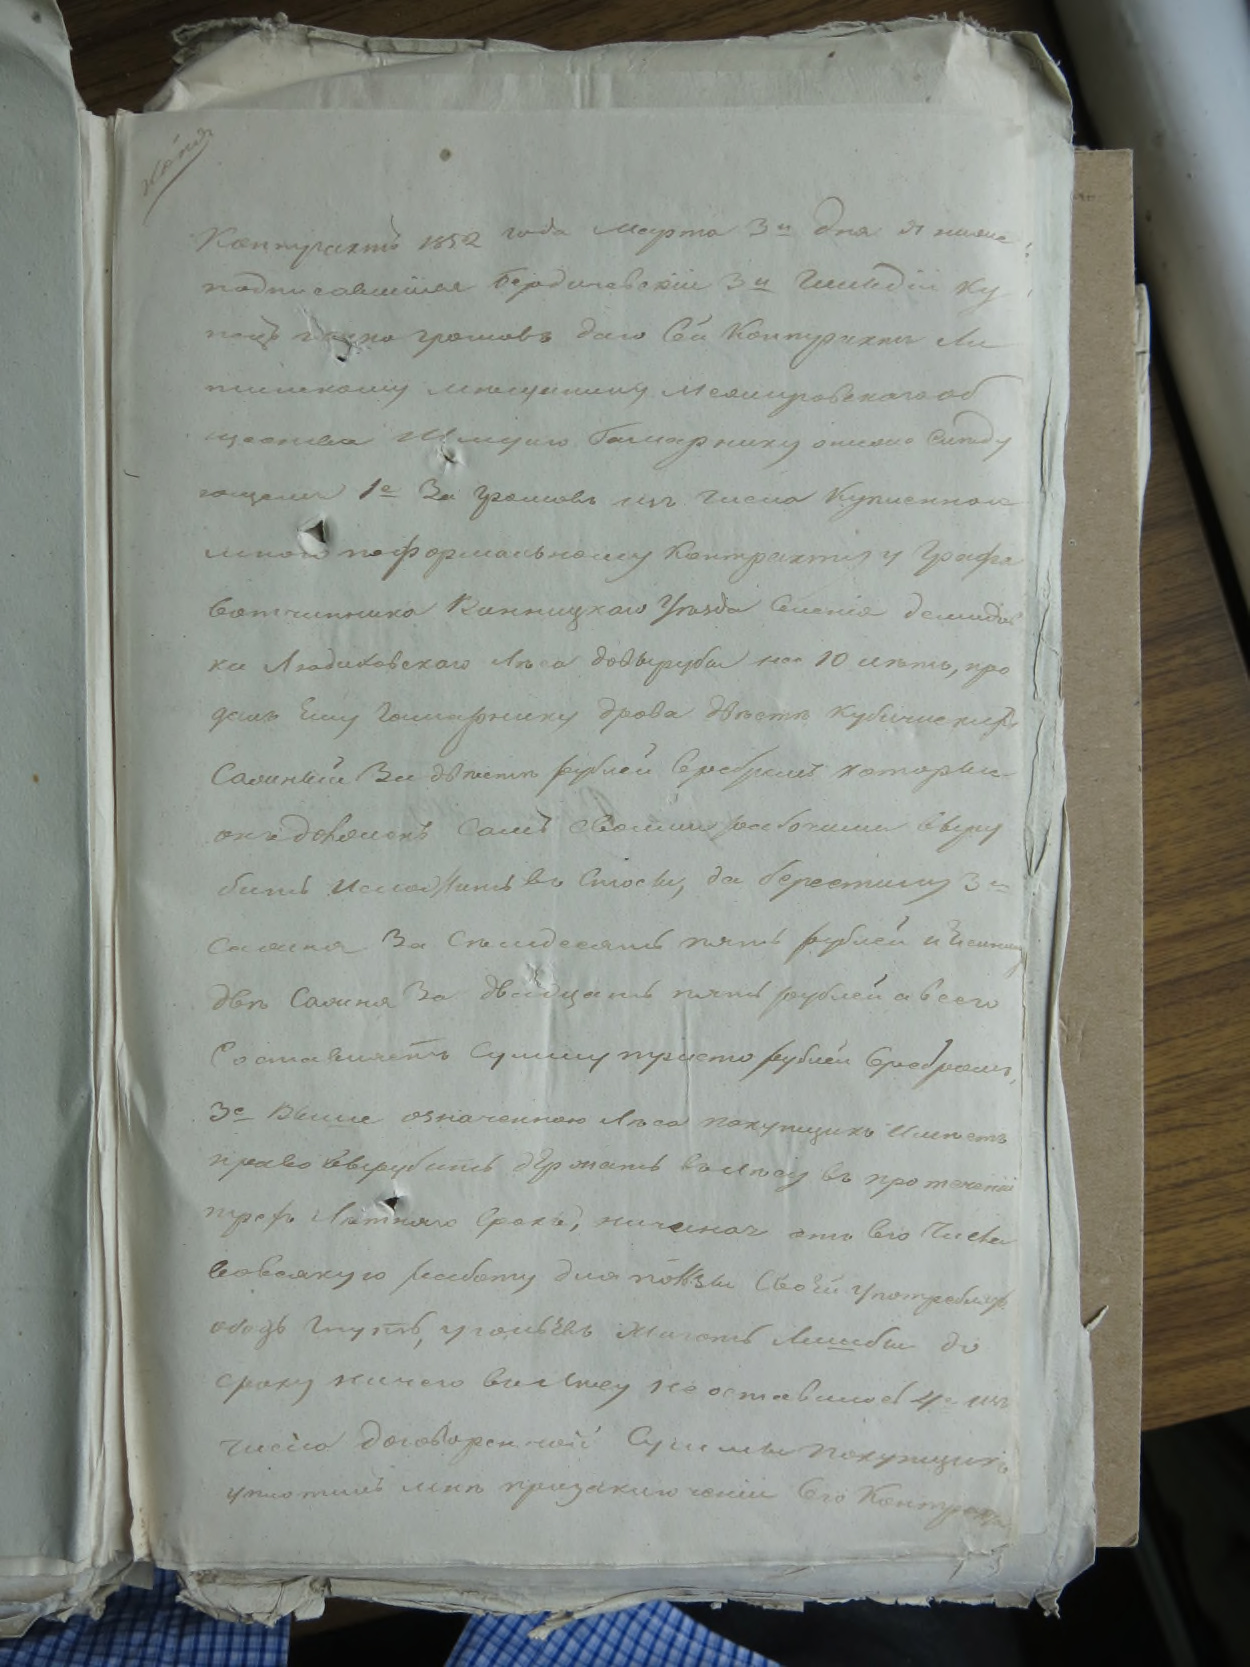 Контрактъ 1852 года Марта 3го дня Я ниже
подписавшійся Бердичевскій 3й Гильдіи Ку
пецъ грошовъ даю Сей Контрактъ Ли
тинскому мещанину Межировскаго об
щества Шмулю Гамарнику въ ниже Следу
ющемъ 1е За грошовъ изъ числа Купленнаго
мною поформальному Контракту у Графа
Вотчинника Винницкаго Уезда Селенія демидов
ки Людиковскаго Лѣса довырубы на 10 лѣтъ, про
далъ Ему Гамарнику дрова двѣсти Кубическихъ
Саженый За двѣсти рублей Серебромъ которые
онъ долженъ Самъ Своими рабочими выру
бить Исложить въ Стосы, да берестину 3
Сажня За Семдесятъ пять рублей и Ясенину
двѣ Сажня За двадцать пять рублей а всего
Составляетъ Сумму триста рублей Серебромъ,
3е Выше означенною Лѣса покупщикъ Имѣетъ
право вырубить держать въ Лѣсу въ протеченіи
трехъ Лѣтняго Срока, начиная отъ Сего Числа
вовсякую работу для ползы Своей употреблять
ободъ гнуть, угольевъ Жигать Лишбы до
сроку ничего въ Лѣсу не оставилось 4е изъ
числа договоренной Суммы Покупщикъ
уплотилъ мнѣ призаключеніи Сего Контракта